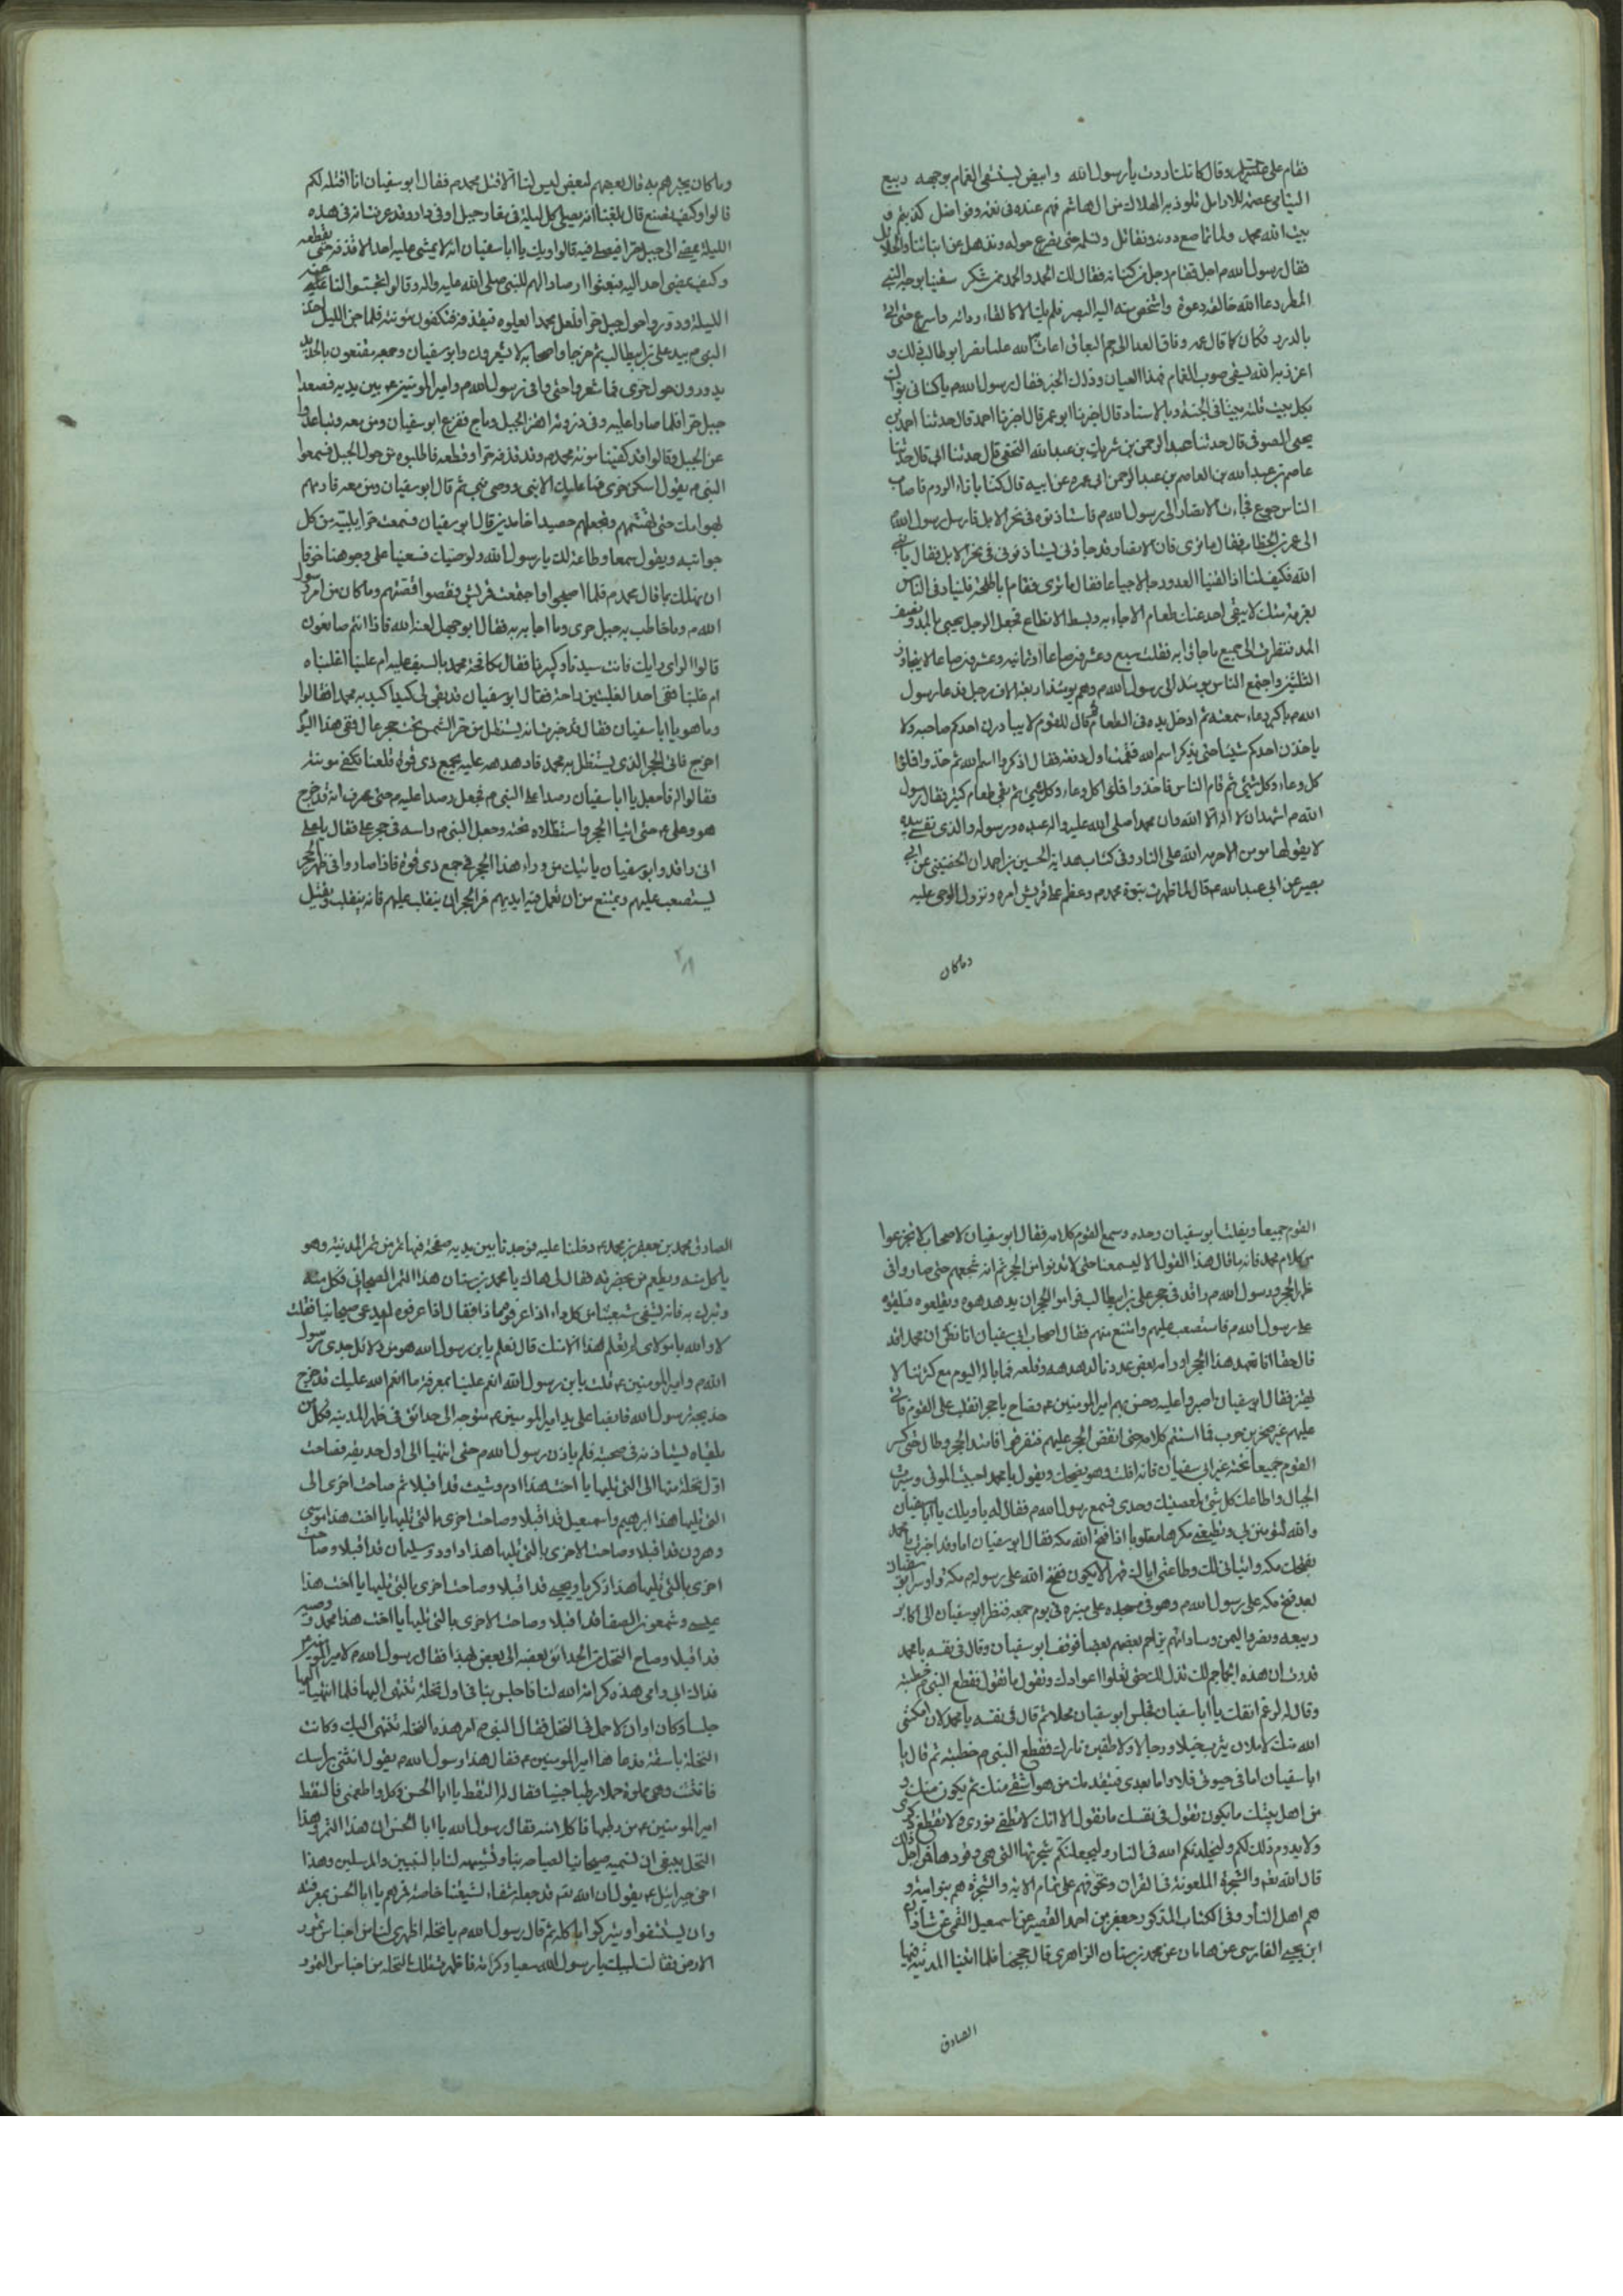 فقام علي عليه السلام وقال كانك اردت يا رسول الله وابيض يستسقى الغمام بوجهه ربيع
اليتامى عصمة للارامل تلوذ به الهلاك من ال هاشم فهم عنده في نعمة وفواضل كذبتم و
بيت الله محمد ولما نماصع دونه ونقاتل ونسلمه حتى نصرع حوله ونذهل عن ابنائنا والحلائل
فقال رسول الله م اجل فقام رجل من كنانة فقال لك الحمد والحمد ممن شكر سقينا بوجه النبي
المطر دعا الله خالقه دعوة واشخص منه اليه البصر فلم يك الا كالقاء ردائه واسرع حتى اتانا
الدرر فكان كما قال عمه
اعز ذبه الله يسقي صوب الغمام فهذا العيان وذاك الخبر فقال رسول الله م يا كناني بواك
بكل بيت قلته بيتا في الجنة وبالاسناد قال اخبرنا ابو عمر قال اخبرنا احمد قال حدثنا احمد بن
يحيى الصوفي قال حدثنا عبد الرحمن بن شريك بن عبد الله النخعي قال حدثنا ابي قال حدثنا
عاصم بن عبد الله بن العاصم بن عبد الرحمن ابي عمرة عن ابيه قال كنا بازاء الروم فاصاب
الناس جوع فجاءت الانصار الى رسول الله م فاستاذنوه في نحر الابل فارسل رسول الله م
الى عمر بن الخطاب فقال ما ترى فان الانصار قد جاؤني يستاذنوني في نحر الابل فقال يا نبي
الله فكيف لنا اذا لقينا العدو غدا رجالا جياعا فقال ما ترى فقام ابا طلحة فليناد في الناس
بعزمة منك لا يبقى احد عنده طعام الا جاء به وبسط الانطاع فجعل الرجل يجيئ بالمد ونصف
المد فنظرت الى جميع ما جاؤا به فقلت سبع وعشرون صاعا او ثمانية وعشرون صاعا لا يجاوز
الثلثين واجتمع الناس يومئذ الى رسول الله م وهم يومئذ اربعة الاف رجل فدعا رسول
الله م باكثر دعاء سمعته ثم ادخل يده في الطعام ثم قال للقوم لا يبادرن احدكم صاحبه ولا
ياخذن احدكم شيئا حتى يذكر اسم الله فقمت اول رفقة فقال اذكروا اسم الله ثم خذوا فاخذوا
كل وعاء وكل شيئ ثم قام الناس فاخذوا فملئوا كل وعاء وكل شيئ ثم بقي طعام كثير فقال رسول
الله م اشهد ان لا اله الا الله وان محمدا صلى الله عليه واله عبده ورسوله والذي نفسي بيده
لا يقولها مومن الا حرمه الله على النار وفي كتاب هداية الحسين بن احمدان الحضيني عن ابي
بصير عن ابي عبد الله ع قال لما ظهرت نبوة محمد م وعظم على قريش امره ونزول الوحي عليه
وما كان
وما كان يخبرهم به قال بعضهم لبعض ليس لنا الا قتل محمد م فقال ابو سفيان انا اقتله لكم
قالوا وكيف تصنع قال بلغنا انه يصلي كل ليلة في مغار جبل او في واد وقد عرفت انه في هذه
الليلة يمضي الى جبل حرا فيصلي فيه قالوا ويك يا ابا سفيان انه لا يمشي عليه احد الا قذفه حتى يقطعه
وكيف يمضي احد اليه فبعثوا ارصادا لهم للنبي صلى الله عليه واله وقالوا تجسسوا لنا عليه
الليلة ودوروا حول جبل حرا فلعل محمدا يعلوه فيقذفه فتكفون مونته فلما جن الليل اخذ
النبي م بيد علي بن ابيطالب ثم خرجا واصحابه لا يشعرون وابو سفيان وجميع من معه مقنعون بالحديد
يدورون حول حرى فما شعروا حتى وافى رسول الله م وامير المومنين ع بين يديه فصعدا
جبل حرا فلما صارا عليه وفي ذروته اهتز الجبل وماج ففزع ابو سفيان ومن معه وتباعدوا
عن الجبل وقالوا قد كفينا مونة محمد م وقد قذفه حرا وقطعه فاطلبوه من حول الجبل فسمعوا
النبي م يقول اسكن حرى فما عليك الا نبي ووصي نبي ثم قال ابو سفيان
جوانبه ويقول سمعا وطاعة لك يا رسول الله ولوصيك فسعينا على وجوهنا خوفا
ان نهلك بما قال محمد م فلما اصبحوا واجتمعت قريش فقصوا قصتهم وما كان من امر رسول
الله م وما خاطب به جبل حرى وما اجابه به فقال ابو جهل لعنه الله فاذا انتم صانعون
قالوا الراي رايك فانت سيدنا وكبيرنا فقال نكافحه محمد بالسيف عليه ام علينا اغلبناه
ام غلبنا ففي احد الغلبتين راحة فقال ابو سفيان قد بقي لي كيد اكيد به محمدا فقالوا
وما هو يا ابا سفيان فقال قد خبرت انه يستظل من حر الشمس تحت حجر عال ففي هذا اليوم
اخرج فاتي الحجر الذي يستظل به محمد فادهدهه عليه بجميع ذي قوة فلعنا نكفي مونته
فقالوا له فافعل يا ابا سفيان رصدا على النبي م فجعل رصدا عليه م حتى عرف انه قد خرج
هو وعلي ع حتى اتيا الحجر واستظلا تحته وجعل النبي م راسه في حجر علي فقال يا علي
اني راقد وابو سفيان ياتيك من وراء هذا الحجر في جمع ذي قوة فاذا صاروا في ظهر الحجر
ليستصعب عليهم ويمتنع من ان تعمل فيه ايديهم فمر الحجر ان ينقلب عليهم فانه ينقلب ويقتل
القوم جميعا ويفلت ابو سفيان وحده وسمع القوم كلامه فقال ابو سفيان لاصحابه لا تجزعوا
من كلام محمد فانه ما قال هذا القول الا ليسمعنا حتى لا ندنو من الحجر ثم انه شجعهم حتى صاروا في
ظهر الحجر ورسول الله م راقد في حجر علي بن ابيطالب فراموا الحجر ان يدهدهوه ويقلعوه فيلقوه
على رسول الله م فاستصعب عليهم وامتنع منهم فقال اصحاب ابي سفيان انا نظن ان محمدا قد
قال حقا انا نعهد هذا الحجر لو رامه بعض عددنا لدهدهه وقلعه فما باله اليوم مع كثرتنا لا
يهتز فقال ابو سفيان اصبروا عليه وحس بهم امير المومنين ع فصاح يا حجر انقلب على القوم فات
عليهم غير صخر بن حرب فما استتم كلامه حتى انقض الحجر عليهم فتفرقوا فامتد الحجر وطال حتى كبس
القوم جميعا تحته غير ابي سفيان فانه افلت وهو يضحك ويقول يا محمد لو احييت الموتى وسيرت
الجبال واطاعك كل شيئ لعصيتك وحدي فسمع رسول الله م فقال له يا ويلك يا ابا سفيان
والله لتومنن بي وتطيعني مكرها مغلوبا اذا فتح الله مكة فقال ابو سفيان اما وقد اخبرت يا محمد
بفتحك مكة وايماني بك وطاعتي اياك قهرا لا يكون ففتح الله على رسوله م مكة واسر ابو سفيان
بعد فتح مكة على رسول الله م وهو في مسجده على منبره في يوم جمعة فنظر ابو سفيان الى اكابر
ربيعة ومضر واليمن وساداتهم يزاحم بعضهم بعضا فوقف ابو سفيان وقال في نفسه يا محمد
قدرت ان هذه الجماجم لك تذل لك حتى تعلو اعوادك وتقول ما تقول فقطع النبي م خطبته
وقال له لو رغم انفك يا ابا سفيان فجلس ابو سفيان خجلا ثم قال في نفسه يا محمد لان امكنني
الله منك لاملان يثرب خيلا ورجالا ولاطفين نارك فقطع النبي م خطبته ثم قال يا
ابا سفيان اما في حيوتي فلا واما بعدي فيتقدمك من هو اشقى منك ثم يكون منك و
من اهل بيتك ما يكون تقول في نفسك ما تقول الا انك لا تطفئ نوري ولا تقطع ذكري
ولا يدوم ذلك لكم وليخلدنكم الله في النار وليجعلنكم شجرتها التي هي وقودها فمن اجل ذلك
قال الله تعم والشجرة الملعونة في القران ونخوفهم على تمام الاية والشجرة هم بنو امية و
هم اهل النار وفي الكتاب المذكور جعفر بن احمد القصير عن اسمعيل القمي عن شاذان
ابن يحيى الفارسي عن هامان عن محمد بن سنان الزاهري قال حججنا فلما اتينا المدينة وبها
الصادق
الصادق محمد بن جعفر بن محمد ع دخلنا عليه فوجدنا بين يديه صحفة فيها تمر من تمر المدينة وهو
ياكل منه ويطعم من بحضرته فقال لي هاك يا محمد بن سنان هذا التمر الصيحاني فكل منه
وتبرك به فانه يشفي شيعتنا من كل داء اذا عرفوه مماذا فقال اذا عرفوه لم يدعى صيحانيا فقلت
لا والله يا مولاي لم نعلم هذا الا منك قال نعلم يا ابن سنان هو من دلائل جدي رسول
الله م وامير المومنين ع قلت يا بن رسول الله انعم علينا بمعرفته انعم الله عليك قال خرج
جدي رسول الله قابضا على يد امير المومنين ع متوجها الى حدائق في ظهر المدينة فكل من
يلقاه يستاذنه في صحبته فلم ياذن رسول الله م حتى انتهيا الى اول حديقة فصاحت
اول نخلة منها الى التي تليها يا اخت هذا ادم وشيث قد اقبلا ثم صاحت اخرى الى
التي تليها هذا ابرهيم واسمعيل قد اقبلا وصاحت اخرى بالتي تليها يا اخت هذا موسى
وهرون قد اقبلا وصاحت الاخرى بالتي تليها هذا داود وسليمان قد اقبلا وصاحت
اخرى بالتي تليها هذا زكريا ويحيى قد اقبلا وصاحت اخرى بالتي تليها يا اخت هذا
عيسى وشمعون الصفا قد اقبلا وصاحت الاخرى بالتي تليها يا اخت هذا محمد ووصيه
قد اقبلا وصاح النخل من الحدائق بعضه الى بعض بهذا فقال رسول الله م لامير المومنين ع
فداك ابي وامي هذه كرامة الله لنا فاجلس بنا في اول نخلة ننتهي اليها فلما انتهيا اليها
جلسا وكان اوان لا حمل في النخل فقال النبي م مر هذه النخلة تنثني اليك وكانت
النخلة باسقة فدعاها امير المومنين ع فقال هذا رسول الله م يقول انثني براسك
فانثنت وهي مملوة حملا رطبا جنيا فقال له التقط يا ابا الحسن وكل واطعمني فالتقط
امير المومنين ع من رطبها فاكلا منه فقال رسول الله يا ابا الحسن ان هذا التمر وهذا
النخل ينبغي ان نسميه صيحانيا لصياحه بنا وتشبيهه لنا بالنبيين والمرسلين وهذا
اخي جبرائيل ع يقول ان الله تعم قد جعله شفاء لشيعتنا خاصة فمرهم يا ابا الحسن بمعرفته
وان يستشفوا ويتبركوا باكله ثم قال رسول الله م يا نخلة اظهري لنا من اجناس تمور
الارض فقالت لبيك يا رسول الله سعيا وكرامة فاظهرت تلك النخلة من اجناس التمور